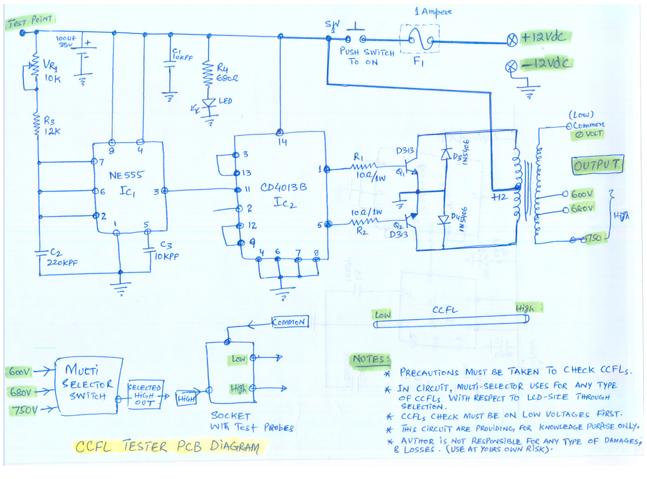 TEST POINT
1 Ampere
SW
1
PUSH SWITCH
TO ON
F1
+12Vdc
-12Vdc
100UF
35V
+
VR1
10K
C1
10KPF
R4
680R
LED
R3
12K
(Low)
Common
0 VOLT
OUTPUT
8
4
14
7
NE555
IC1
3
6
2
1
5
3
13
11
CD4013B
IC2
1
2
12
5
9
4
6
7
8
R1
10R/1W
D313
Q1
D3
IN5406
10R/1W
R2
Q2
D313
D4
IN5406
+12
600V
680V
750
High
C2
220KPF
C3
10KPF
CCFL
Low
High
COMMON
Low
High
600V
680V
750V
MULTI
SELECTOR
SWITCH
SELECTED
HIGH
OUT
HIGH
SOCKET
WITH TEST PROBES
CCFL TESTER PCB DIAGRAM
NOTES:
* PRECAUTIONS MUST BE TAKEN TO CHECK CCFLs.
* IN CIRCUIT, MULTI-SELECTOR USES FOR ANY TYPE
OF CCFLs WITH RESPECT TO LCD-SIZE THROUGH
SELECTION.
* CCFLs CHECK MUST BE ON LOW VOLTAGES FIRST.
* THIS CIRCUIT ARE PROVIDING FOR KNOWLEDGE PURPOSE ONLY.
* AUTHOR IS NOT RESPONSIBLE FOR ANY TYPE OF DAMAGES,
& LOSSES. (USE AT YOURS OWN RISK).